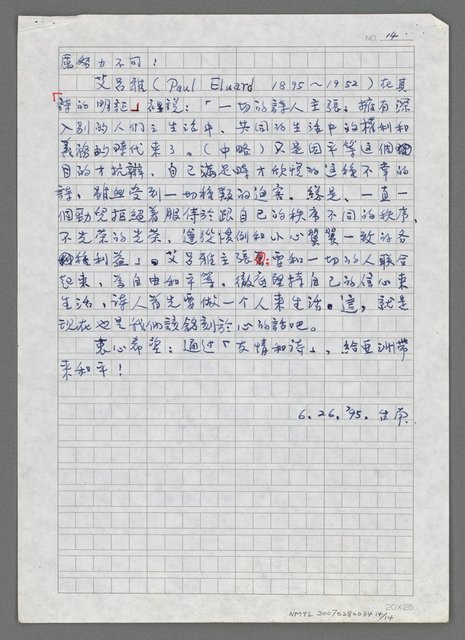 NO. 14
屬努力不可！
艾呂雅（Paul Eluard 1895～1952）在其
「詩的明記」裡說：「一切的詩人主張：擁有深
入別的人們之生活中、共同的生活中的權利和
義務的時代來了。（中略）又是因平等這個
目的才抗辯，自己滿足時才欣悅的這種不幸的
詩，雖然受到一切種類的迫害。緣是、一直一
個勁兒拒絕著服侍於跟自己的秩序不同的秩序、
不光榮的光榮，遵從慣例和小心翼翼一致的各
種利益」。艾呂雅主張：要和一切的人聯合
起來，為自由和平等，徹底堅持自己的信心來
生活，詩人首先要做一個人來生活。這，就是
現在也是我們該銘刻於心的話吧。
衷心希望：通過「友情和詩」，給亞洲帶
來和平！
6.26.'95.
20×25
NMTL 20070280034 14/14